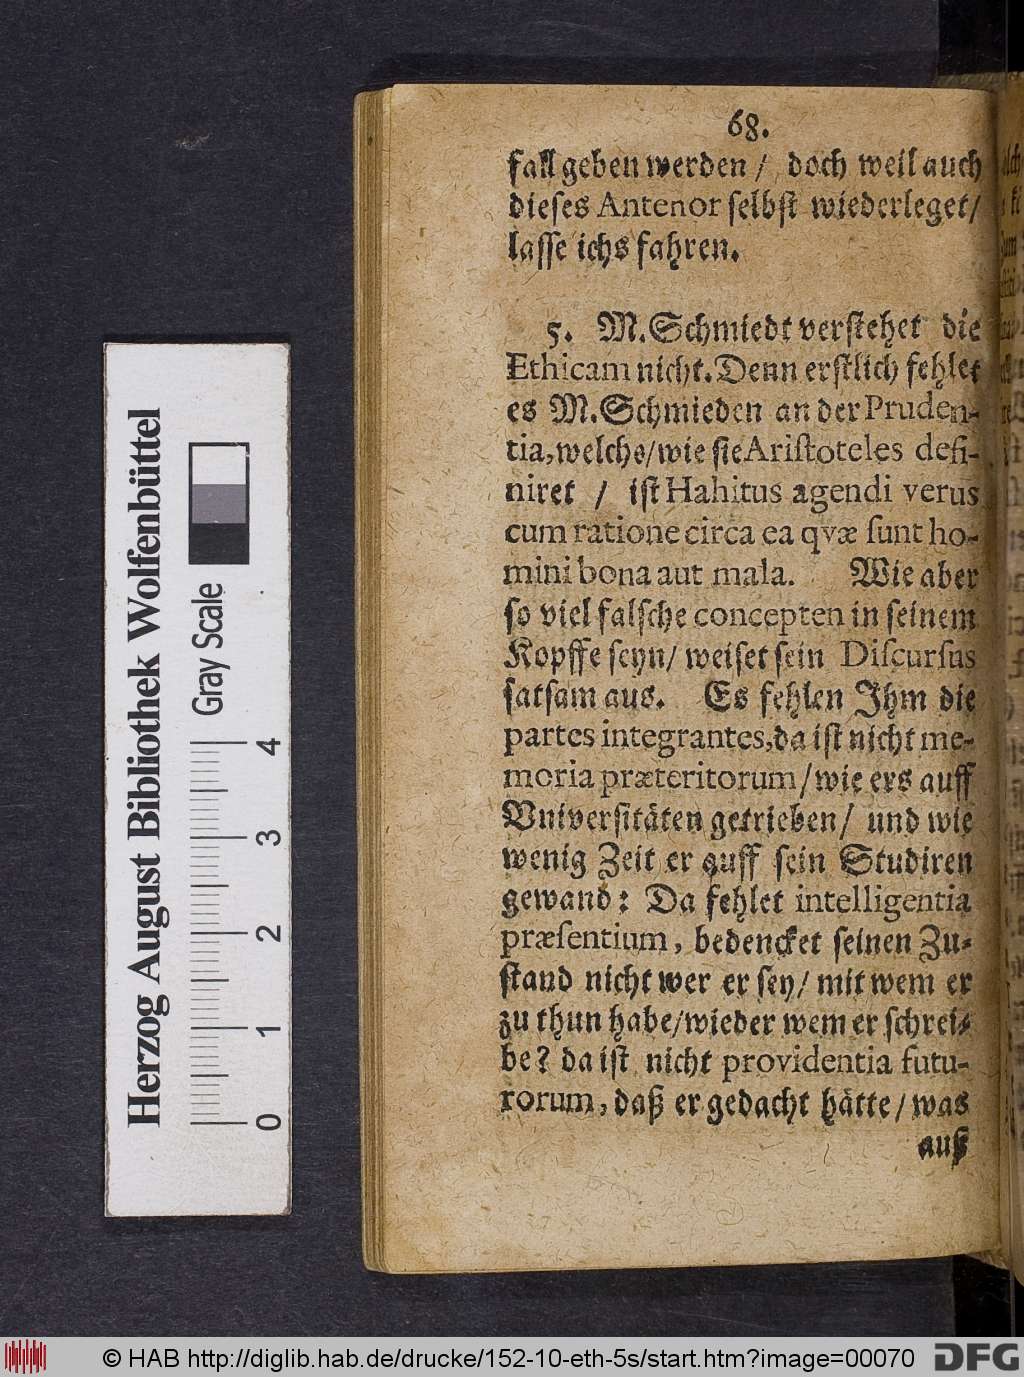 68.
fall geben werden / doch weil auch
dieses Antenor selbst wiederleget/
lasse ichs fahren.
5. M. Schmiedt verstehet die
Ethicam nicht. Denn erstlich fehlet
es M. Schmieden an der Pruden-
tia, welche/ wie sie Aristoteles defi-
niret / ist Hahitus agendi verus
cum ratione circa ea qvæ sunt ho-
mini bona aut mala. Wie aber
so viel falsche concepten in seinem
Kopffe seyn/ weiset sein Discursus
satsam aus. Es fehlen Ihm die
partes integrantes, da ist nicht me-
moria præteritorum/ wie ers auff
Vniversitäten getrieben/ und wie
wenig Zeit er auff sein Studiren
gewand: Da fehlet intelligentia
præsentium, bedencket seinen Zu-
stand nicht wer er sey/ mit wem er
zu thun habe/ wieder wem er schrei-
be? da ist nicht providentia futu-
rorum, daß er gedacht hätte/ was
auß
Herzog August Bibliothek Wolfenbüttel
Gray Scale
0 1 2 3 4
© HAB http://diglib.hab.de/drucke/152-10-eth-5s/start.htm?image=00070
DFG